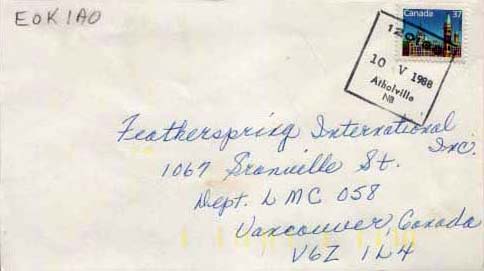 E0K 1A0
Canada 37
10 V 1988
Atholville
NB
Featherspring International
Inc.
1067 Granville St.
Dept. LMC 058
Vancouver, Canada
V6Z 1L4